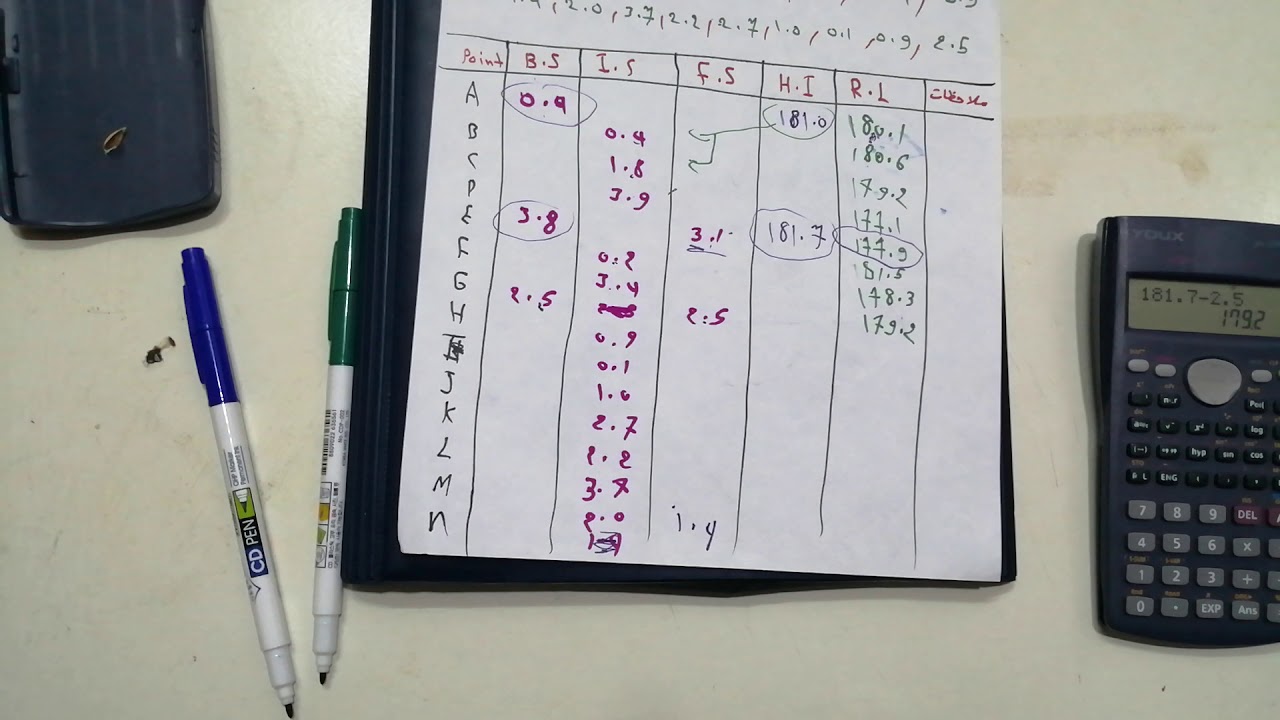 2.0, 3.7, 2.2, 2.7, 1.0, 0.1, 0.9, 2.5
Point B.S I.S F.S H.I R.L ملاحظات
A 0.9 181.0 180.1
B 0.4 180.6
C 1.8 179.2
D 3.9 177.1
E 3.8 3.1 181.7 177.9
F 0.2 181.5
G 3.4 178.3
H 2.5 2.5 179.2
I 0.9
J 0.1
K 1.0
L 2.7
M 2.2
N 3.7
2.0 1.4
CD PEN
181.7-2.5
179.2
hyp sin cos
ENG
7 8 9 DEL
4 5 6 X
1 2 3 +
0 . EXP Ans